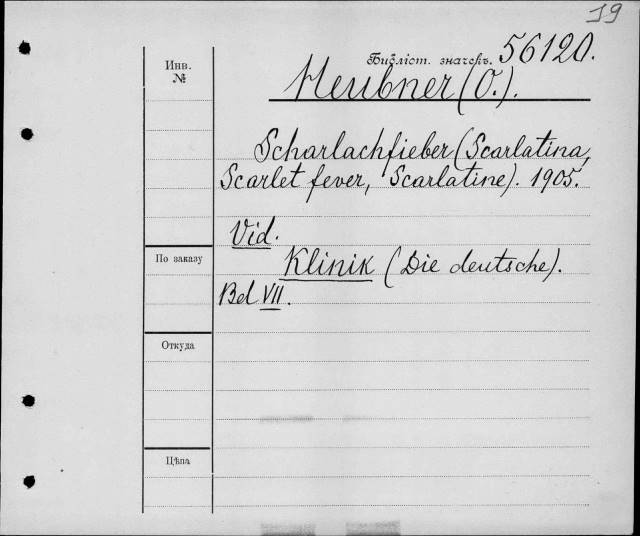 19
Инв.
№
Библіот. значекъ. 56120.
Heubner (O.).
Scharlachfieber (Scarlatina,
Scarlet fever, Scarlatine). 1905.
Vid.
По заказу
Klinik (Die deutsche).
Bd VII.
Откуда
Цѣна